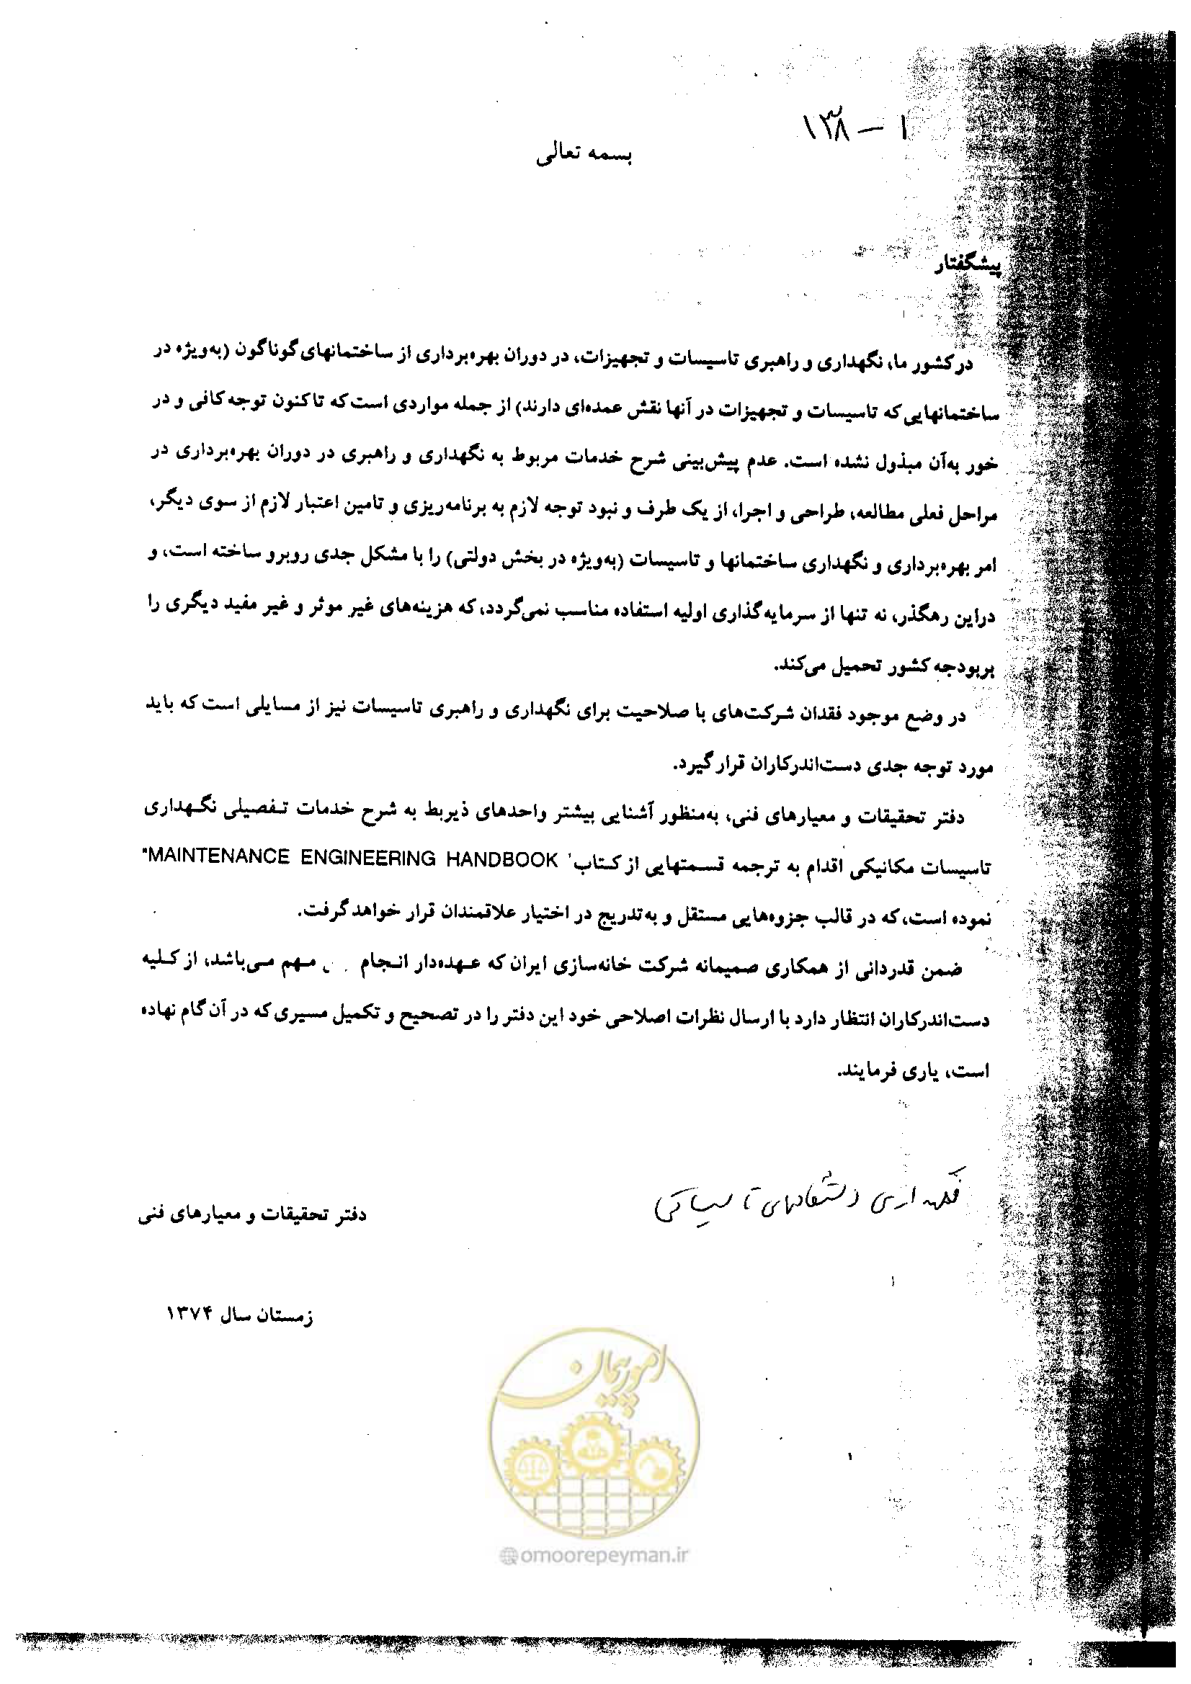 ۱۳۸ – ۱
بسمه تعالی
پیشگفتار
درکشور ما، نگهداری و راهبری تاسیسات و تجهیزات، در دوران بهره‌برداری از ساختمانهای گوناگون (به‌ویژه در
ساختمانهایی‌که تاسیسات و تجهیزات در آنها نقش عمده‌ای دارند) از جمله مواردی است‌که تاکنون توجه کافی و در
خور به‌آن مبذول نشده است. عدم پیش‌بینی شرح خدمات مربوط به نگهداری و راهبری در دوران بهره‌برداری در
مراحل فعلی مطالعه، طراحی و اجرا، از یک طرف و نبود توجه لازم به برنامه‌ریزی و تامین اعتبار لازم از سوی دیگر،
امر بهره‌برداری و نگهداری ساختمانها و تاسیسات (به‌ویژه در بخش دولتی) را با مشکل جدی روبرو ساخته است، و
دراین رهگذر، نه تنها از سرمایه‌گذاری اولیه استفاده مناسب نمی‌گردد، که هزینه‌های غیر موثر و غیر مفید دیگری را
بربودجه کشور تحمیل می‌کند.
در وضع موجود فقدان شرکت‌های با صلاحیت برای نگهداری و راهبری تاسیسات نیز از مسایلی است که باید
مورد توجه جدی دست‌اندرکاران قرار گیرد.
دفتر تحقیقات و معیارهای فنی، به‌منظور آشنایی بیشتر واحدهای ذیربط به شرح خدمات تفصیلی نگهداری
تاسیسات مکانیکی اقدام به ترجمه قسمتهایی از کتاب "MAINTENANCE ENGINEERING HANDBOOK"
نموده است، که در قالب جزوه‌هایی مستقل و به‌تدریج در اختیار علاقمندان قرار خواهد گرفت.
ضمن قدردانی از همکاری صمیمانه شرکت خانه‌سازی ایران که عهده‌دار انجام مهم می‌باشد، از کلیه
دست‌اندرکاران انتظار دارد با ارسال نظرات اصلاحی خود این دفتر را در تصحیح و تکمیل مسیری که در آن گام نهاده
است، یاری فرمایند.
نگهداری
دفتر تحقیقات و معیارهای فنی
زمستان سال ۱۳۷۴
امور پیمان
@omoorepeyman.ir
۱